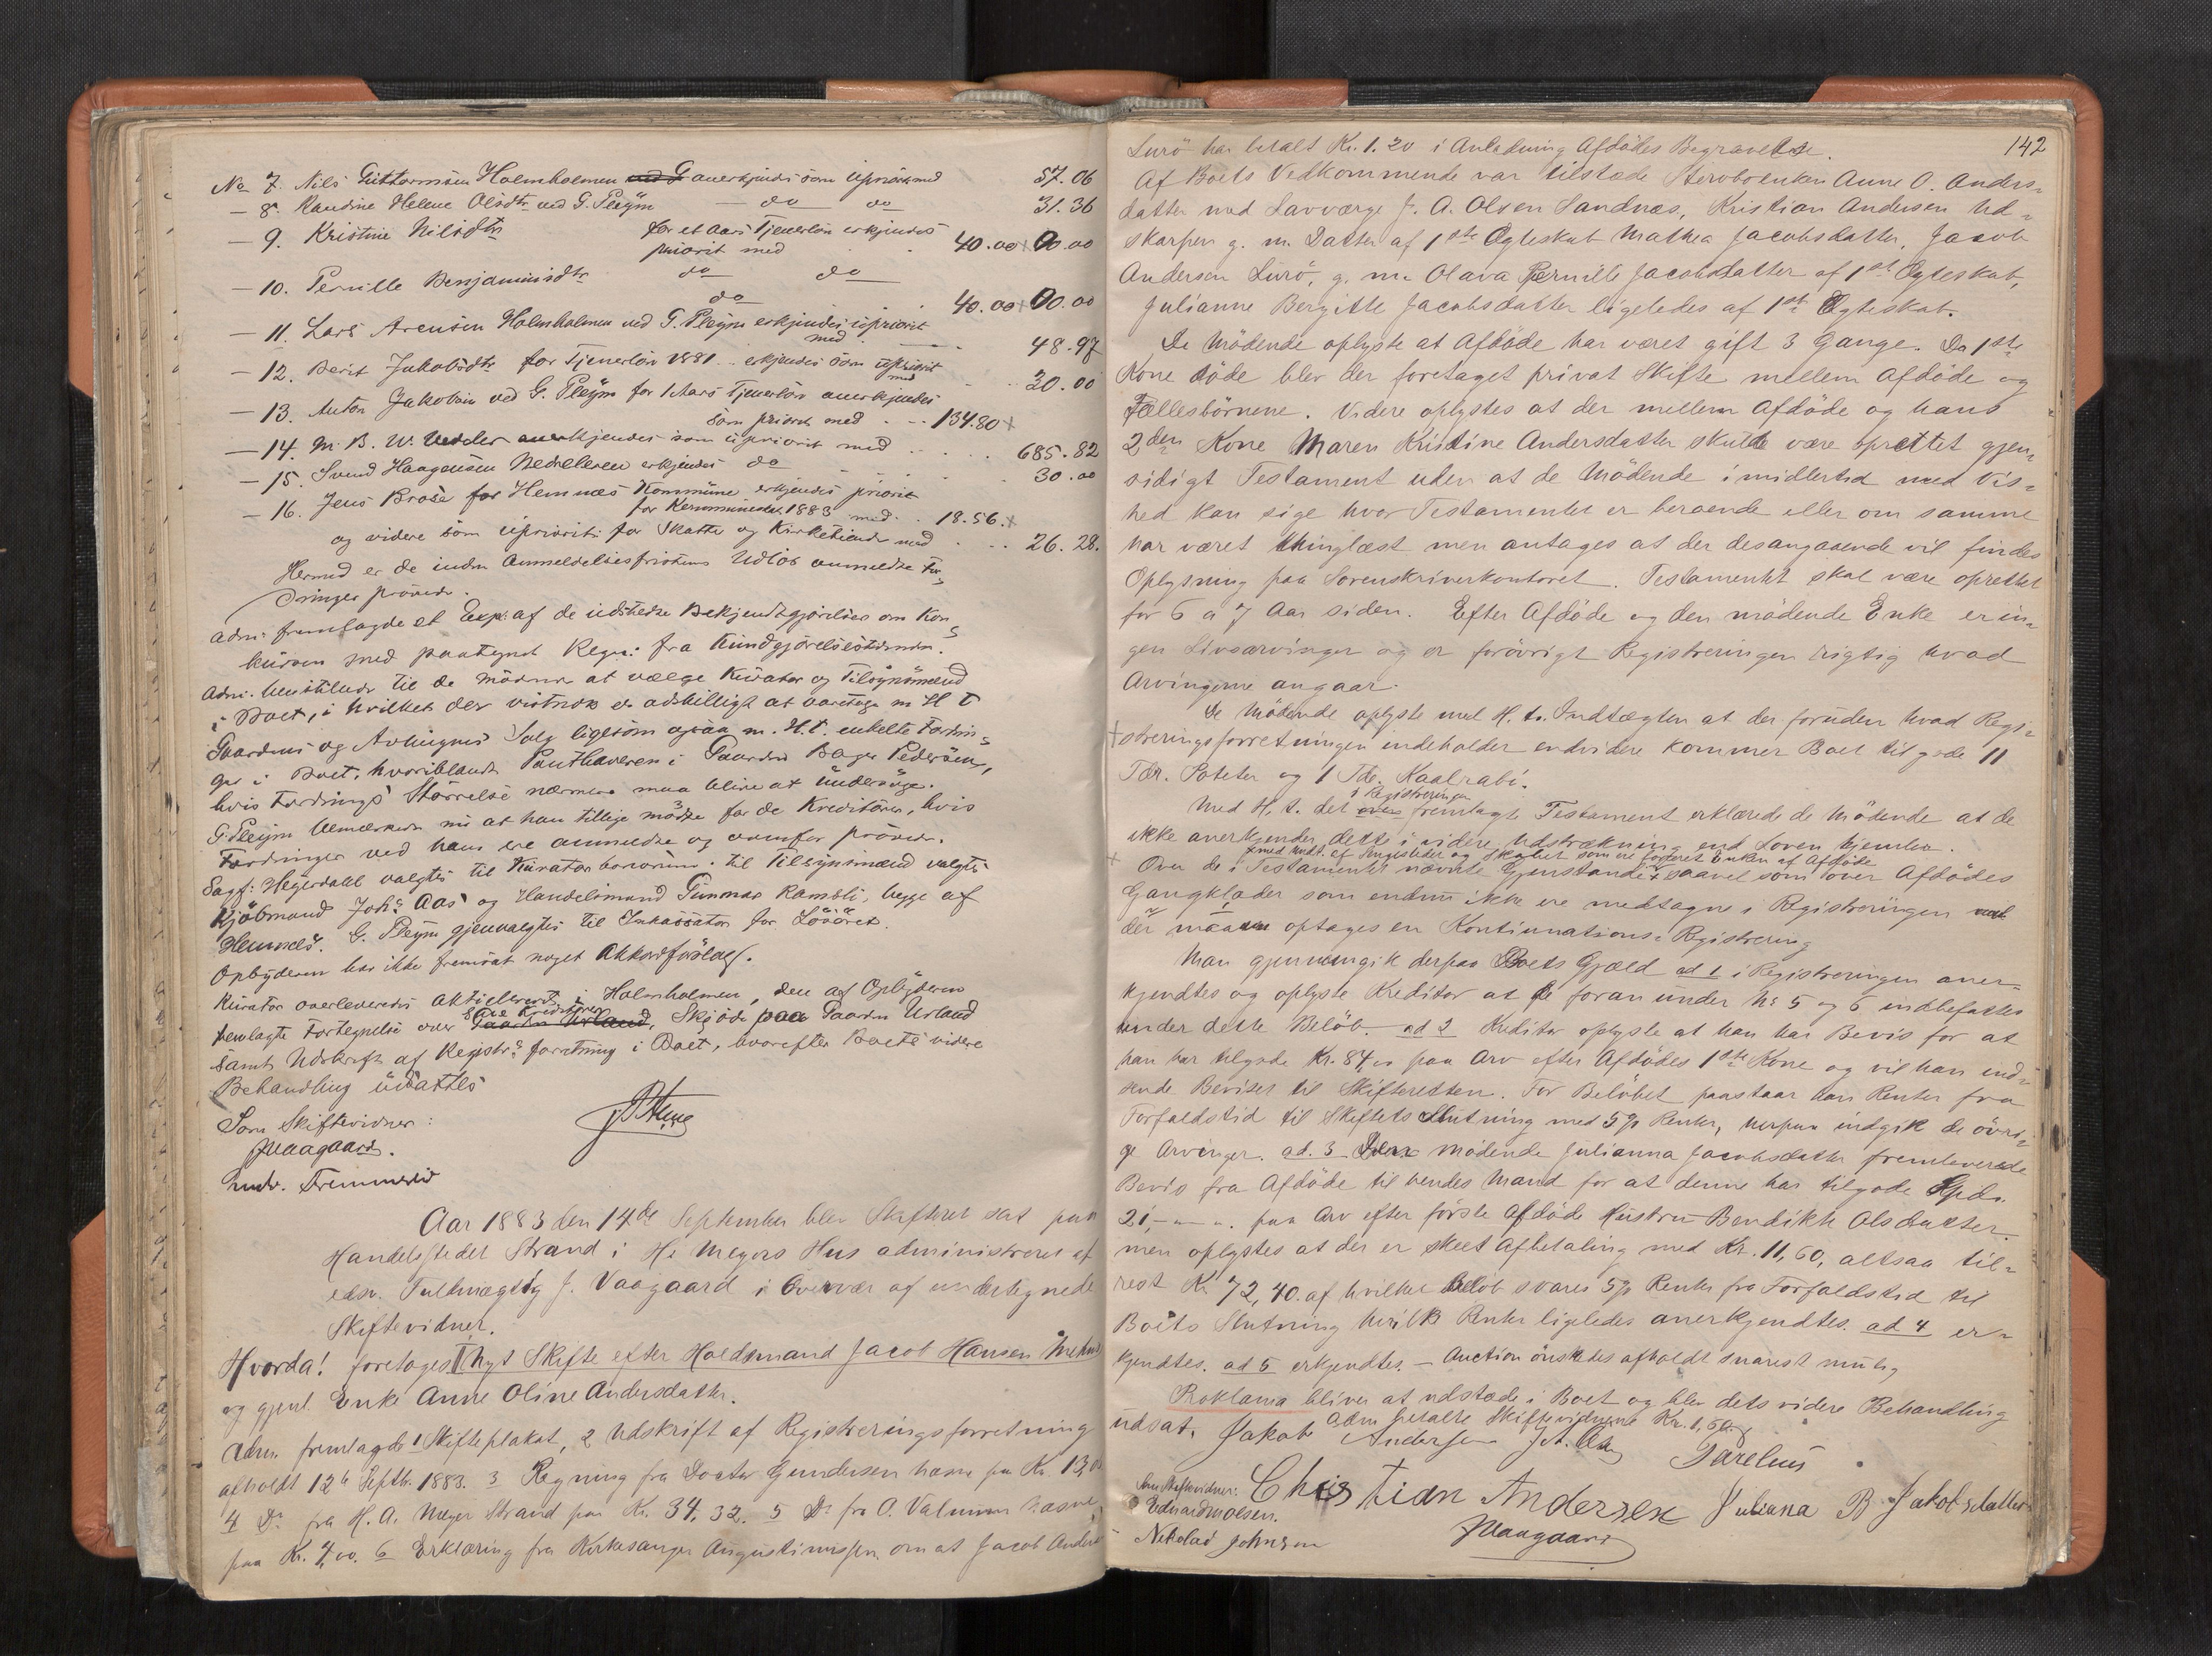 No 7. Nils Guttormsen Holmholmen ved G anerkjendes som uprior. med 57.06
— 8. Randine Helene Olsdtr ved G. Pleym — do do 31.36
— 9. Kristine Nilsdtr for et Aars Tjenerløn erkjendes
priorit med 40.00 + 00.00
— 10. Pernille Benjaminsdtr do do
do 40.00 + 00.00
— 11. Lars Arensen Holmholmen ved G. Pleym erkjendes upriorit
med 48.97
— 12. Berit Jakobsdtr for Tjenerløn 1881 erkjendes som upriorit
med 20.00
— 13. Anton Jakobsen ved G. Pleym for 1 Aars Tjenerløn anerkjendes
som priorit med 134.80 +
— 14. M. B. W. Vedeler anerkjendes som upriorit med 685.82
— 15. Svend Haagensen erkjendes do 30.00
— 16. Jens Brose for Hemnæs Kommune erkjendes priorit
for 1883 med 18.56 +
og videre som upriorit: for Skatter og Kirketiende med 26.28.
Hermed er de inden Anmeldelsesfristens Udløb anmeldte For-
dringer prøvede.
Adm: fremlagde et Exp: af de udstedte Bekjendtgjørelser om Kon-
kursen med paategnet Regn: fra Kundgjørelsestidende.
Adm. henstillede til de mødende at vælge Kurator og Tilsynsmænd
i Boet, i hvilket der vistnok er adskilligt at varetage m H t
Gaardens og Avlingens Salg ligesom ogsaa m. H. t. enkelte Fordrin-
ger i Boet, hvoriblandt Panthaveren i Gaarden Borger Pedersens,
hvis Fordrings Størrelse nærmere maa blive at undersøge.
G. Pleym bemærkede nu at han tillige mødte for de Kreditorer, hvis
Fordringer ved ham ere anmeldte og ovenfor prøvede.
Sagf: Hegerdahl valgtes til Kurator bonorum. Til Tilsynsmænd valgtes
Kjøbmand Johs Aas og Handelsmand Gunnar Rambli, begge af
Hemnæs. G. Pleym gjenvalgtes til Inkassator for Løsøret.
Opbyderen har ikke fremsat noget Akkordforslag.
Kurator overleveredes i Holmholmen, den af Opbyderen
sine Kreditorer
fremlagte Fortegnelse over Gaarden Urland, Skjøde paa Gaarden Urland
samt Udskrift af Registr.s forretning i Boet, hvorefter Boets videre
Behandling udsattes
Som Skiftevidner:
JVaagaard.

Aar 1883 den 14de September blev Skifteret sat paa
Handelsstedet Strand i H. Meyers Hus administreret af
edsv. Fuldmægtig J. Vaagaard i Overvær af undertegnede
Skiftevidner.
Hvorda! foretoges I Nyt Skifte efter Holdsmand Jacob Hansen
og gjenl. Enke Anne Oline Andersdatter.
Adm. fremlagde 1 Skifteplakat, 2 Udskrift af Registreringsforretning
afholdt 12te Septbr. 1883. 3 Regning fra Doctor Gundersen paa Kr. 13,00
4 Do fra H. A. Meyer Strand paa Kr. 34,32. 5 Do fra O. Valnum
paa Kr. 4,00. 6 Erklæring fra Kirkesanger Augustinussen om at Jacob Anders
142
Lurö har betalt Kr. 1.20 i Anledning Afdödes Begravelse.
Af Boets Vedkommende var tilstæde Sterboenken Anne O. Anders-
datter med Lavværge J. A. Olsen Sandnæs, Kristian Andersen Ud-
skarpen g. m. Datter af 1ste Ægteskab Mathea Jacobsdatter, Jacob
Andersen Lurö, g. m. Olava Pernille Jacobsdatter af 1ste Ægteskab,
Julianne Bergitte Jacobsdatter ligeledes af 1ste Ægteskab.
De Mödende oplyste at Afdöde har været gift 3 Gange. Da 1ste
Kone döde blev der foretaget privat Skifte mellem Afdöde og
Fællesbörnene. Videre oplystes at der mellem Afdöde og hans
2den Kone Maren Kristine Andersdatter skulde være oprettet gjen-
sidigt Testament uden at de Mödende imidlertid med Vis-
hed kan sige hvor Testamentet er beroende eller om samme
har været thinglæst men antages at der desangaaende vil findes
Oplysning paa Sorenskriverkontoret. Testamentet skal være oprettet
for 6 a 7 Aar siden. Efter Afdöde og den mödende Enke er in-
gen Livsarvinger og er forövrigt Registreringen rigtig hvad
Arvingerne angaar.
De Mödende oplyste med H. t. Indtægten at der foruden hvad Regi-
+ streringsforretningen indeholder endvidere kommer Boet til gode 11
Tdr. Poteter og 1 Tde. Kaalrabi.
i Registreringen
Med H. t. det oven fremlagte Testament erklærede de Mödende at de
ikke anerkjender dette i videre Udstrækning end Loven hjemler.
+ med Undt. af Sengeklæder og Skabet som ere foræret Enken af Afdöde
+ Over de i Testamentet nævnte Gjenstande + saavel som over Afdödes
Gangklæder som endnu ikke ere medtagne i Registreringen
der maa optages en Kontinuations-Registrering
Man gjennemgik derpaa Boets Gjæld ad 1 i Registreringen aner-
kjendtes og oplyste Kreditor at de foran under No 5 og 6 indbefattes
under dette Belöb. ad 2 Kreditor oplyste at han har Bevis for at
han har tilgode Kr. 84,00 paa Arv efter Afdödes 1ste Kone og vil han ind-
sende Beviset til Skifteretten. For Belöbet paastaar han Renter fra
Forfaldstid til Skiftets Slutning med 5% Renter, herpaa indgik de övri-
ge Arvinger. ad. 3 Den mödende Julianna Jacobsdatter fremleverede
Bevis fra Afdöde til hendes Mand for at denne har tilgode Spd.
21,- - paa Arv efter förste afdöde Hustru Bendikte Olsdatter
men oplystes at der er skeet Afbetaling med Kr. 11,60, altsaa til-
rest Kr. 72,40. af hvilket Belöb svares 5% Renter fra Forfaldstid til
Boets Slutning hvilke Renter ligeledes anerkjendtes. ad 4 er-
kjendtes. ad 5 erkjendtes. — Auction önskedes afholdt snarest mulig
Proklama bliver at udstede i Boet og blev dets videre Behandling
udsat. Adm betalte Skiftevidnerne Kr. 1,60.
Jakob Andersen J. A. Olsen
Som Skiftevidner: Christian Andersen Juliana B. Jakobsdatter
Eduard Moesen.
Nekolai Johnsen JVaagaard